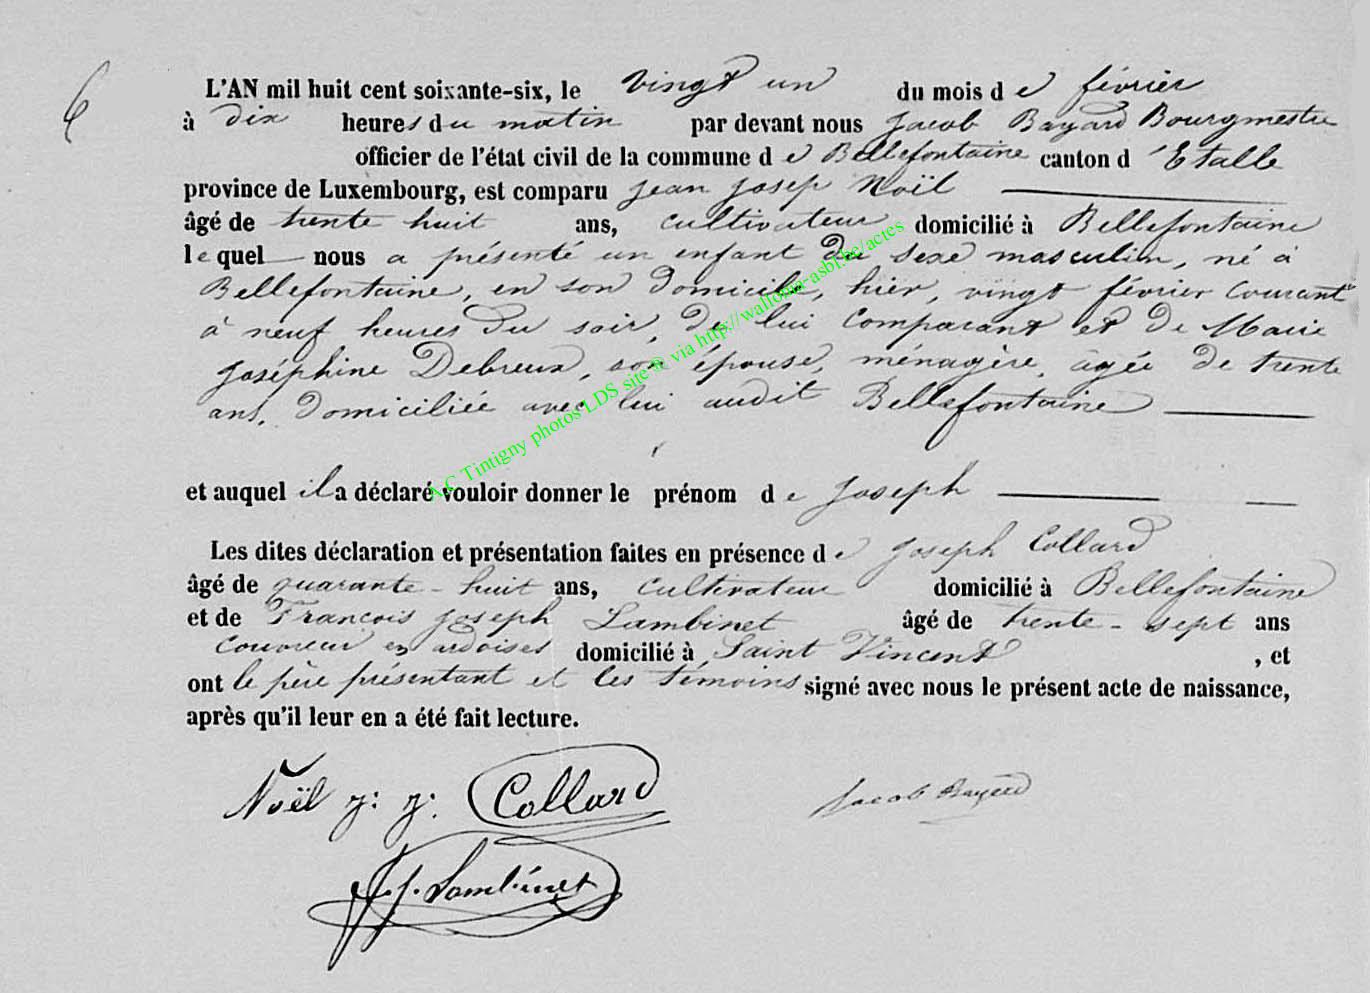 6
L'AN mil huit cent soixante-six, le vingt un du mois de février
à dix heures du matin par devant nous Jacob Bayard Bourgmestre
officier de l'état civil de la commune de Bellefontaine canton d'Etalle
province de Luxembourg, est comparu Jean Josep Noël
âgé de trente huit ans, cultivateur domicilié à Bellefontaine
lequel nous a présenté un enfant du sexe masculin, né à
Bellefontaine, en son domicile, hier, vingt février courant
à neuf heures du soir, de lui comparant et de Marie
Joséphine Debreux, son épouse, ménagère, agée de trente
ans, domiciliée avec lui audit Bellefontaine
et auquel il a déclaré vouloir donner le prénom de Joseph
Les dites déclaration et présentation faites en présence de Joseph Collard
âgé de quarante-huit ans, cultivateur domicilié à Bellefontaine
et de François Joseph Lambinet âgé de trente-sept ans
couvreur en ardoises domicilié à Saint Vincent, et
ont le père présentant et les témoins signé avec nous le présent acte de naissance,
après qu'il leur en a été fait lecture.
Noël j: j: Collard Jacob Bayard
f.j. Lambinet
A.C Tintigny photos LDS site ® via http://wallonia-asbl.be/actes